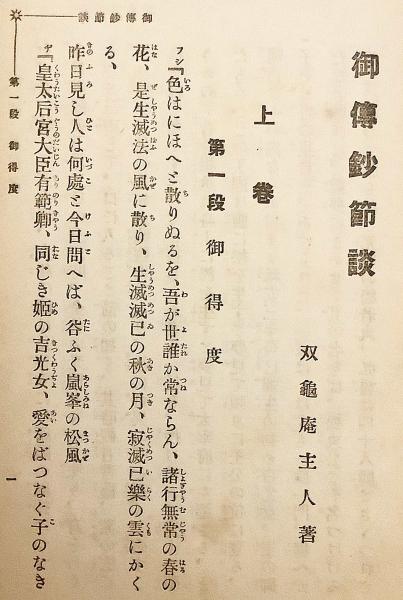 御傳鈔節談
双龜庵主人著
上卷
第一段 御得度
フシ『色はにほへと散りぬるを、吾が世誰か常ならん、諸行無常の春の
花、是生滅法の風に散り、生滅滅已の秋の月、寂滅已樂の雲にかく
る、
昨日見し人は何處と今日問へば、答ふく嵐峯の松風
『皇太后宮大臣有範卿、同じき姬の吉光女、愛をばつなぐ子のなき
御傳鈔節談
第一段 御得度
一